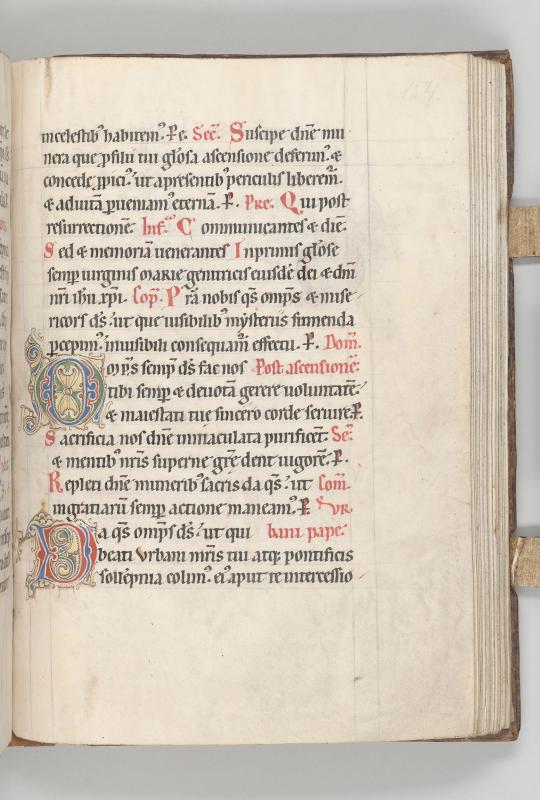 154
incelestib' habitem'. P̄e. Sec̄. Suscipe dn̄e mu
nera que ꝓfilii tui gl̄osa ascensione deferim'. ⁊
concede ꝓpici'. ut apresentib' periculis liberem̄.
⁊ aduitā ꝑueniam' eternā. P̄. Pre. Qui post
resurrectionē. Inf. Communicantes ⁊ diē.
Sed ⁊ memoriā uenerantes Inprimis gl̄ose
semꝑ uirginis marie genitricis eiusdē dei ⁊ dn̄i
nr̄i ih̄u xp̄i. Cop̄. Prā nobis qs̄ omp̄s ⁊ mise
ricors ds̄. ut que uisibilib' mysteriis sumenda
ꝑcepim'. inuisibili consequam̄ effectu. P̄. Dom̄.
Omp̄s semꝑ ds̄ fac nos Post ascensionē.
tibi semꝑ ⁊ deuotā gerere uoluntatē.
⁊ maiestati tue sincero corde seruire. P̄.
Sacrificia nos dn̄e inmaculata purificēt. Sec̄.
⁊ mentib' nr̄is superne gr̄e dent uigorē. P̄.
Repleti dn̄e munerib' sacris da qs̄. ut Com̄.
ingratiarū semꝑ actione maneam'. P̄ VR
Da qs̄ omp̄s ds̄. ut qui bani pape.
beati Vrbani mr̄is tui atq; pontificis
sollēpnia colim'. ei' aput te intercessio